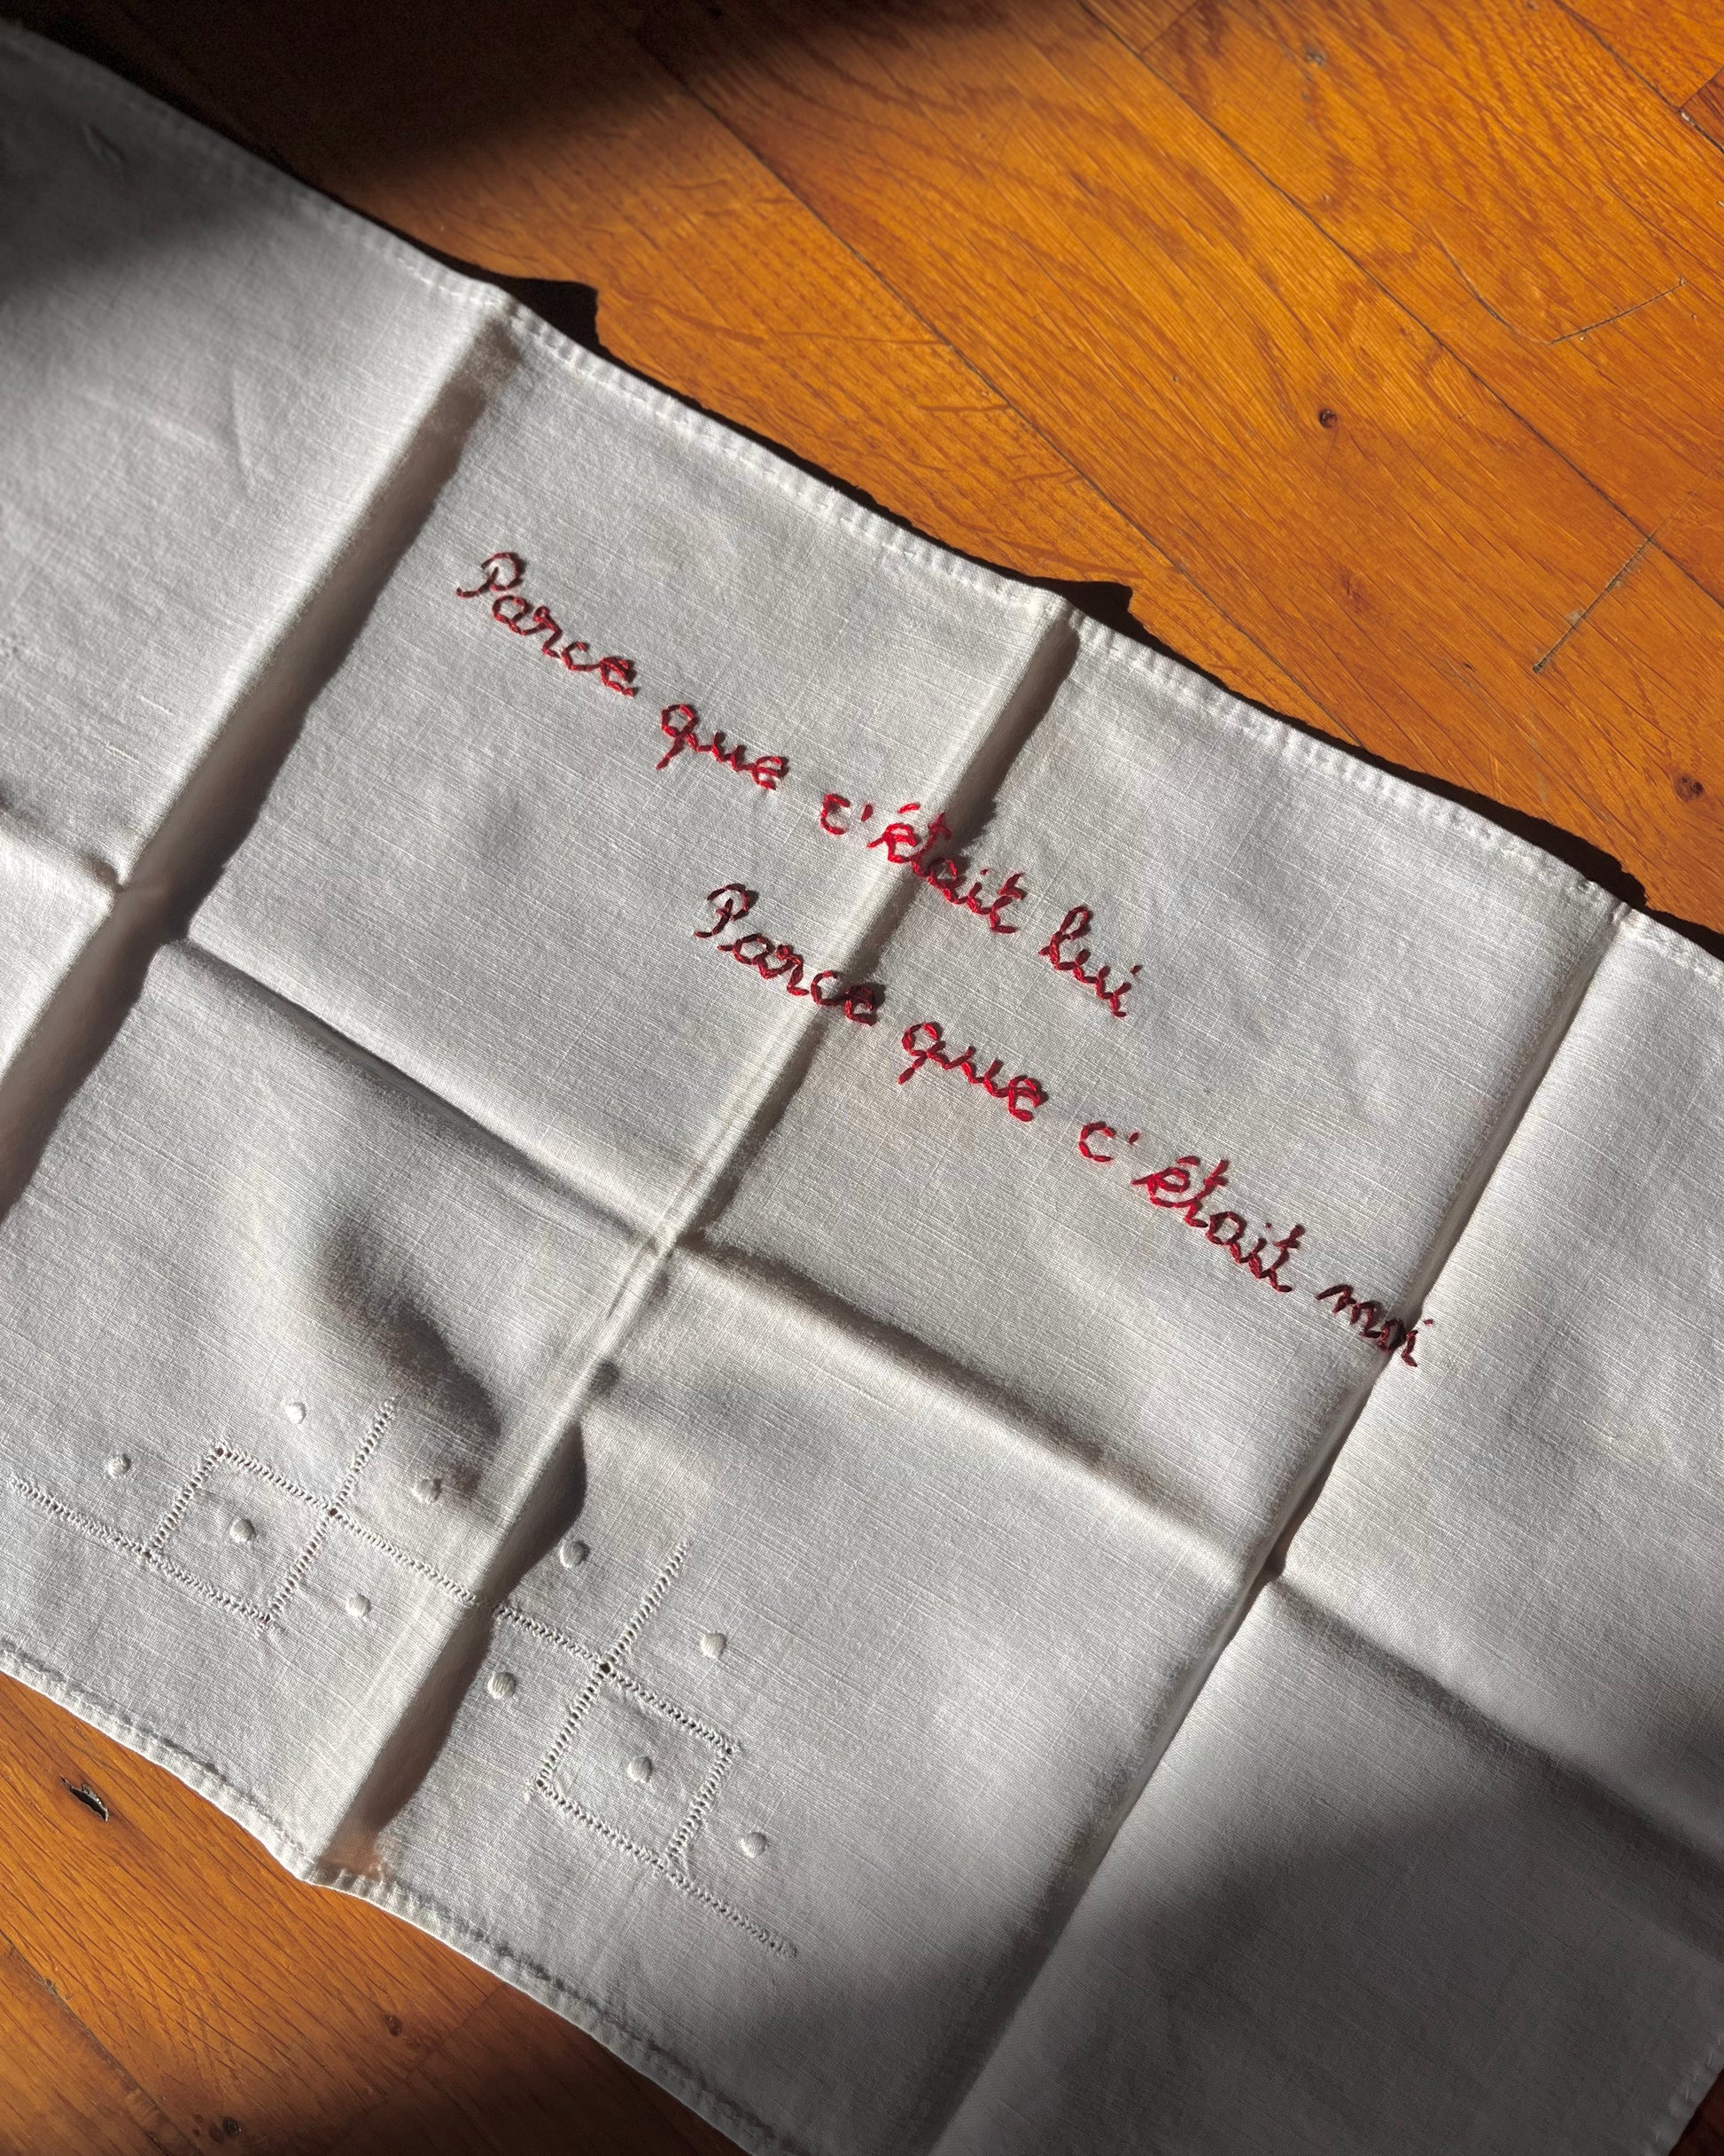 Parce que c'était lui
Parce que c'était moi